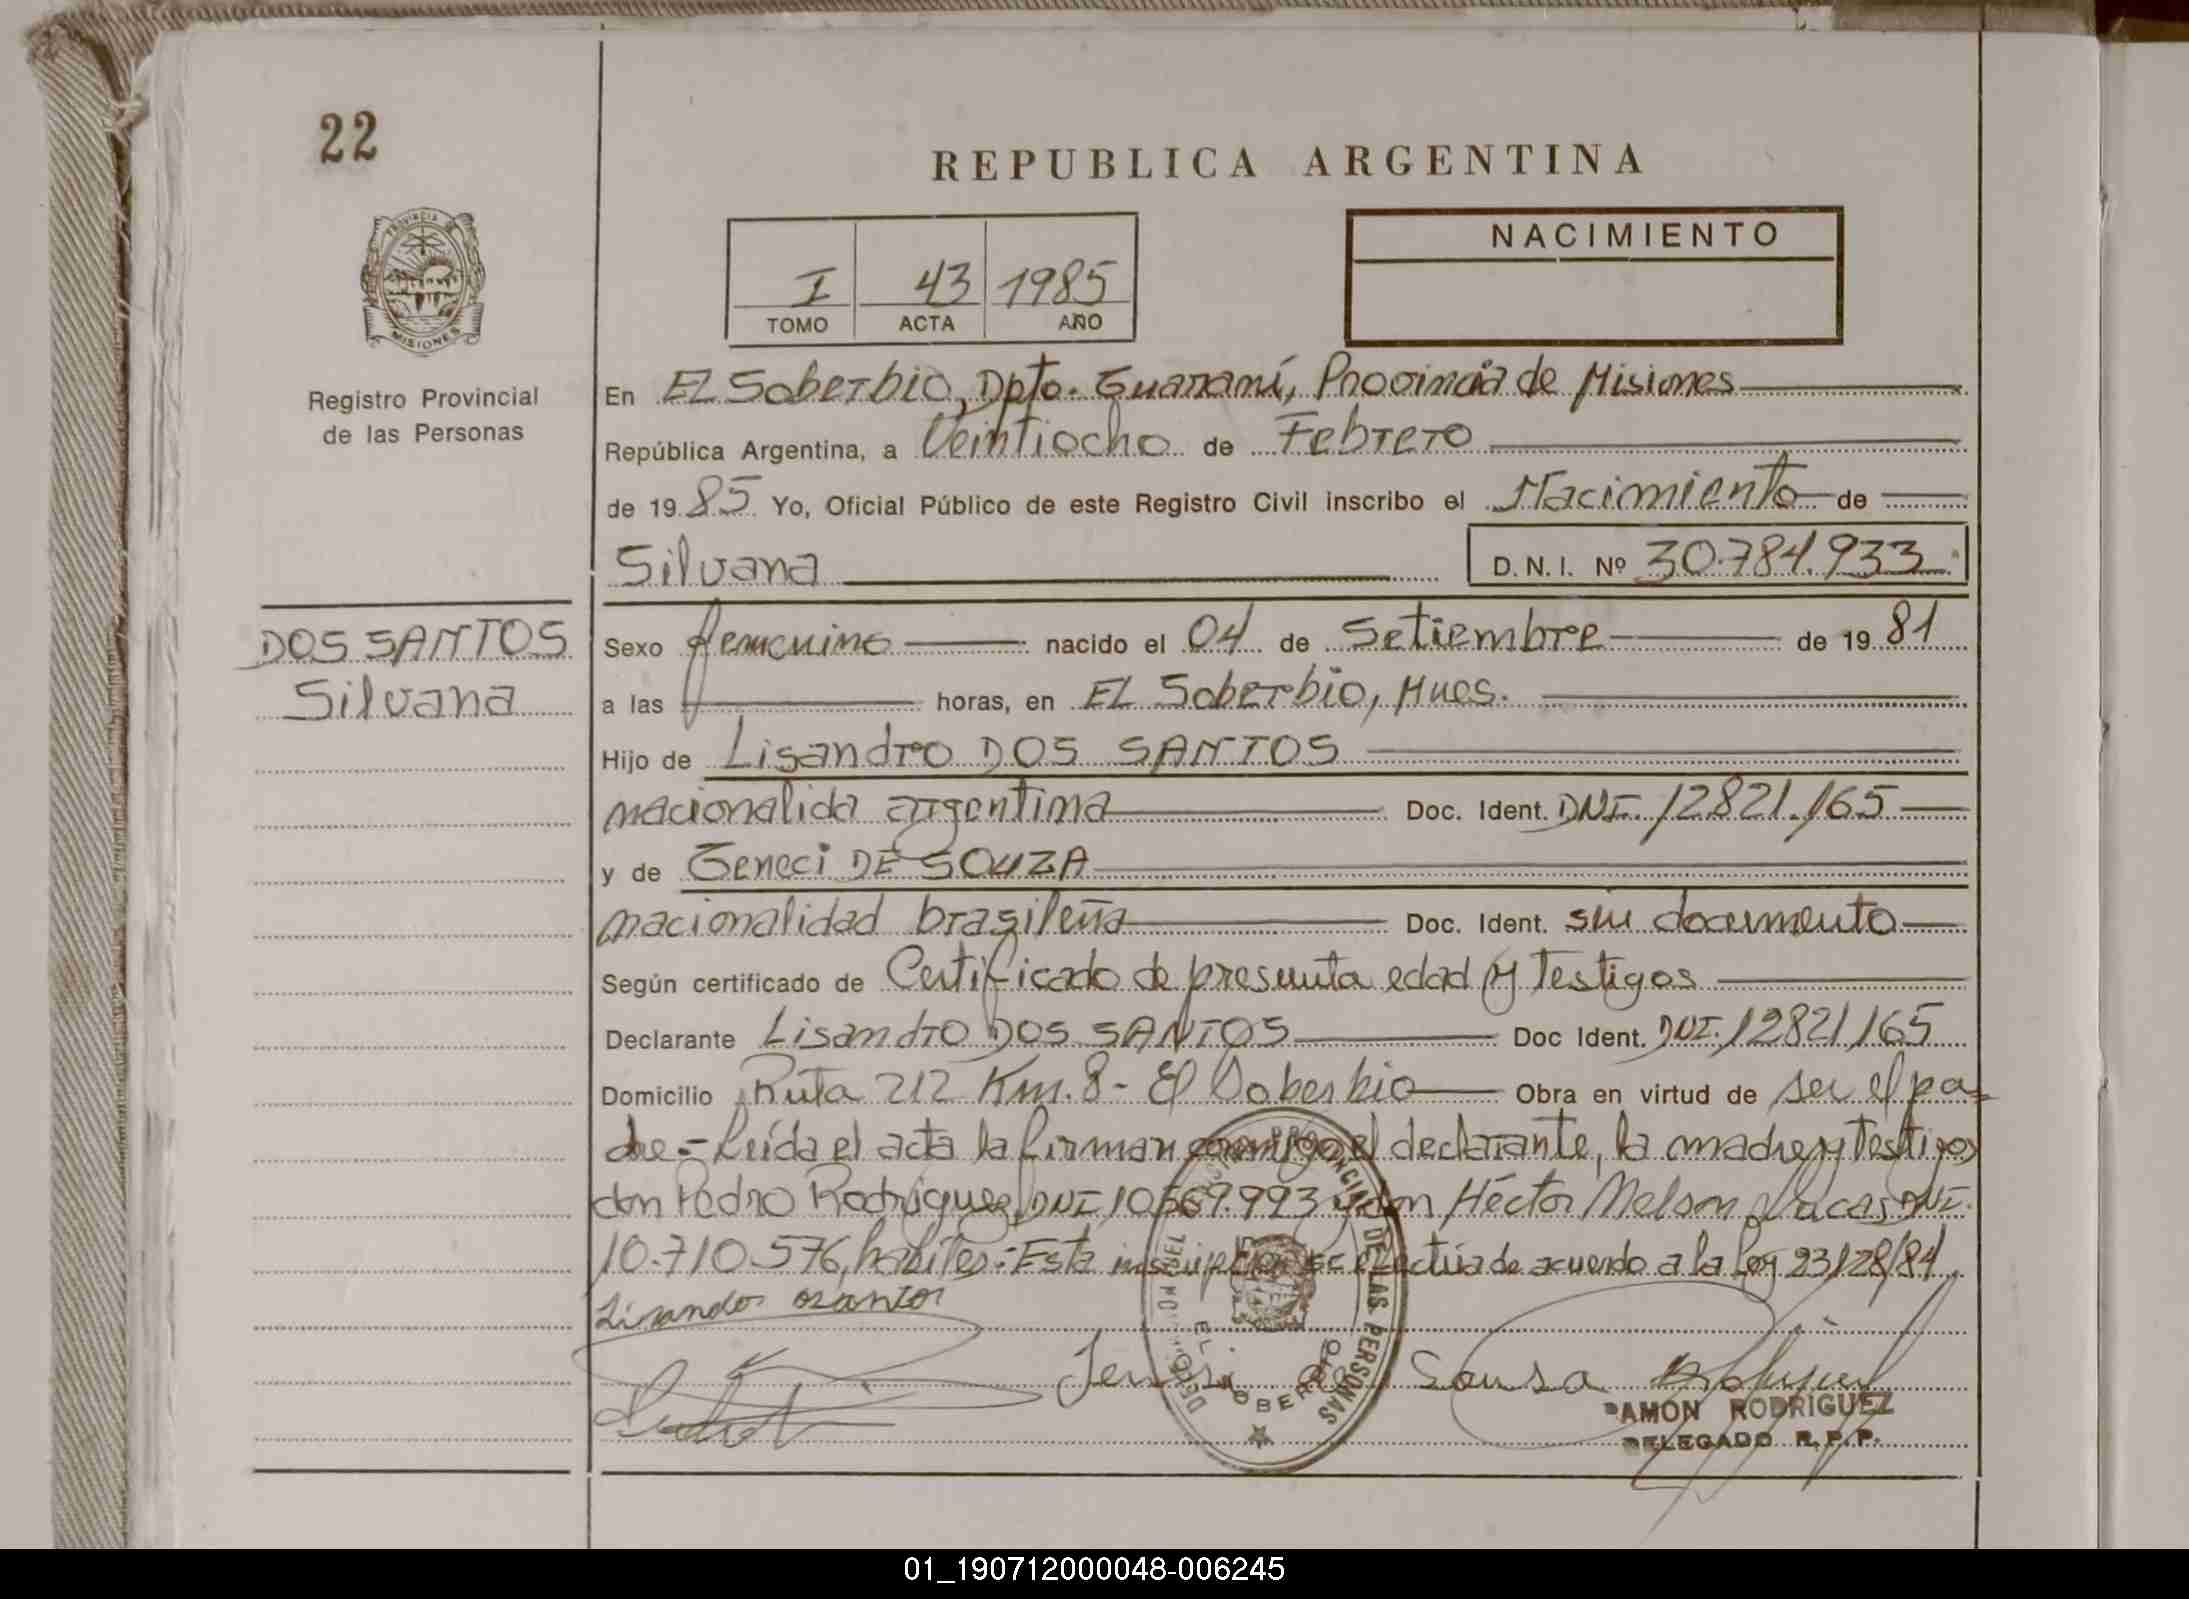 22
REPUBLICA ARGENTINA
PROVINCIA DE
MISIONES
Registro Provincial
de las Personas
I 43 1985
TOMO ACTA AÑO
NACIMIENTO
En El Soberbio, Dpto. Guaraní, Provincia de Misiones
República Argentina, a Veintiocho de Febrero
de 1985 Yo, Oficial Público de este Registro Civil inscribo el Nacimiento de
Silvana
D.N.I. Nº 30.784.933
DOS SANTOS
Silvana
Sexo femenino nacido el 04 de Setiembre de 1981
a las horas, en El Soberbio, Mnes.
Hijo de Lisandro DOS SANTOS
nacionalida argentina Doc. Ident. DNI. 12821.165
y de Geneci DE SOUZA
nacionalidad brasileña Doc. Ident. sin documento
Según certificado de Certificado de presunta edad y Testigos
Declarante Lisandro DOS SANTOS Doc Ident. DNI. 12821.165
Domicilio Ruta 212 Km. 8 - El Soberbio Obra en virtud de ser el pa-
dre.- Leída el acta la firman conmigo el declarante, la madre y testigos
don Pedro Rodriguez DNI 10.569.993 y don Héctor Nelson DNI.
10.710.576, hábiles.- Esta inscripción se efectúa de acuerdo a la Ley 23128/84
Lisandor
Sousa
REGISTRO PROVINCIAL DE LAS PERSONAS
EL SOBERBIO
RAMON RODRIGUEZ
DELEGADO R.P.P.
01_190712000048-006245